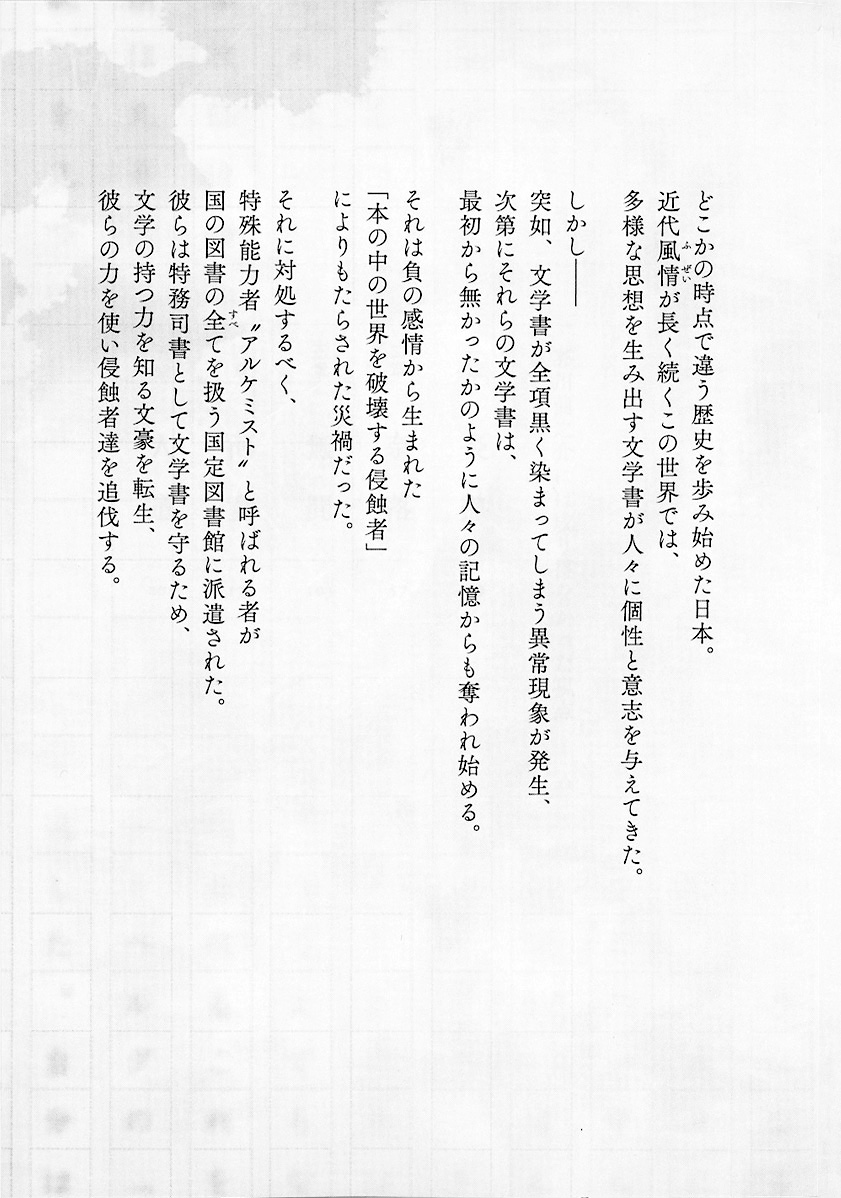 どこかの時点で違う歴史を歩み始めた日本。
近代風情が長く続くこの世界では、
多様な思想を生み出す文学書が人々に個性と意志を与えてきた。
しかし――
突如、文学書が全項黒く染まってしまう異常現象が発生、
次第にそれらの文学書は、
最初から無かったかのように人々の記憶からも奪われ始める。
それは負の感情から生まれた
「本の中の世界を破壊する侵蝕者」
によりもたらされた災禍だった。
それに対処するべく、
特殊能力者〝アルケミスト〟と呼ばれる者が
国の図書の全てを扱う国定図書館に派遣された。
彼らは特務司書として文学書を守るため、
文学の持つ力を知る文豪を転生、
彼らの力を使い侵蝕者達を追伐する。